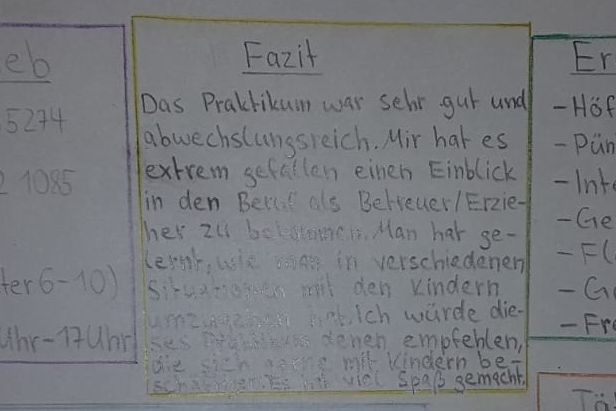 eb
5274
2 1085
ter 6-10)
Uhr-17Uhr
Fazit
Das Praktikum war sehr gut und
abwechslungsreich. Mir hat es
extrem gefallen einen Einblick
in den Beruf als Betreuer/Erzie-
her zu bekommen. Man hat ge-
lernt, wie man in verschiedenen
Situationen mit den Kindern
umzugehen hat. Ich würde die-
ses Praktikum denen empfehlen,
die sich gerne mit Kindern be-
schäftigen. Es hat viel Spaß gemacht.
Er
-Höf
-Pün
-Int
-Ge
-Fl
-Ge
-Fr
Tä